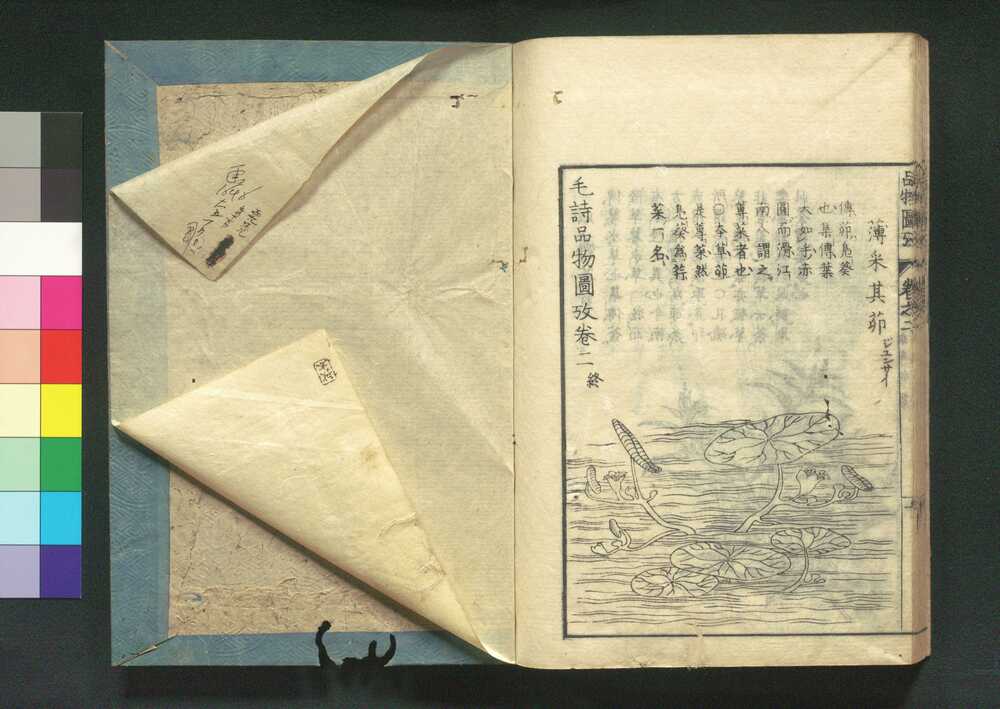 品物圖攷 卷之二
薄采其茆 ジユンサイ
傳茆鳧葵
也集傳葉
大如手赤
圓而滑江
南人謂之
蓴菜者也
○本草茆
是蓴菜然
鳧葵爲荇
菜一名
毛詩品物圖攷卷二終